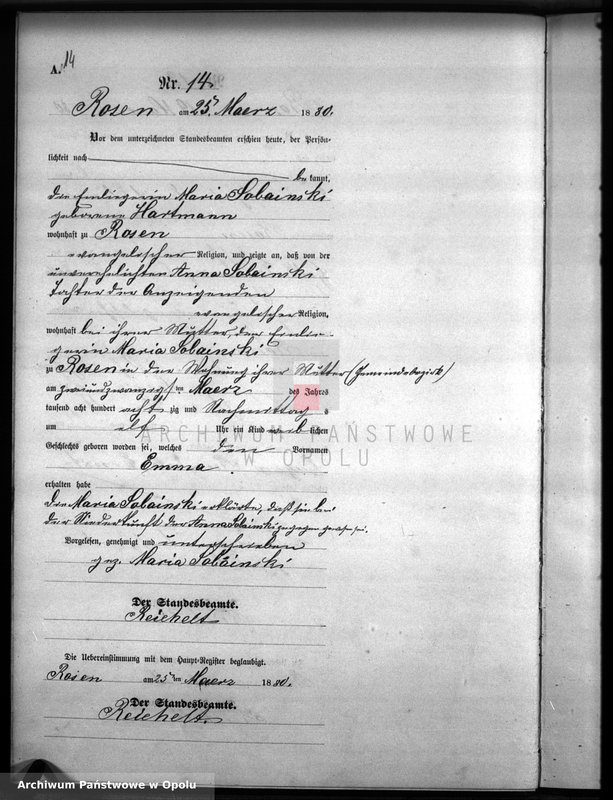 A. 14
Nr. 14.
Rosen am 25ten Maerz 1880.
Vor dem unterzeichneten Standesbeamten erschien heute, der Persön-
lichkeit nach
be kannt,
die Einliegerin Maria Sobainski
geborene Hartmann
wohnhaft zu Rosen
evangelischer Religion, und zeigte an, daß von der
unverehelichten Anna Sobainski
Tochter der Anzeigenden
evangelischer Religion,
wohnhaft bei ihrer Mutter, der Einlie-
gerin Maria Sobainski
zu Rosen in der Wohnung ihrer Mutter (Gemeindebezirk)
am zweiundzwanzigsten Maerz des Jahres
tausend acht hundert achtzig und Nachmittags
um elf Uhr ein Kind weiblichen
Geschlechts geboren worden sei, welches den Vornamen
Emma
erhalten habe
Die Maria Sobainski erklärte, daß sie bei
der Niederkunft der Anna Sobainski zugegen gewesen sei.
Vorgelesen, genehmigt und unterschrieben
gez. Maria Sobainski
Der Standesbeamte.
Reichelt
Die Uebereinstimmung mit dem Haupt-Register beglaubigt.
Rosen am 25ten Maerz 1880.
Der Standesbeamte.
Reichelt.
ARCHIWUM PAŃSTWOWE
W OPOLU
Archiwum Państwowe w Opolu